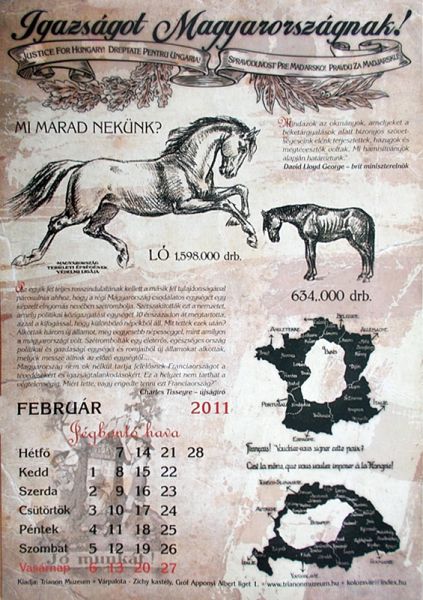 Igazságot Magyarországnak!
JUSTICE FOR HUNGARY! DREPTATE PENTRU UNGARIA!
SPRAVODLIVOST PRE MADARSKO! PRAVDU ZA MADJARSKU!
MI MARAD NEKÜNK?
Mindazok az okmányok, amelyeket a
béketárgyalások alatt bizonyos szövet-
ségeseink elénk terjesztettek, hazugok és
megtévesztők voltak. Mi hamisítványok
alapján határoztunk."
David Lloyd George – brit miniszterelnök
MAGYARORSZÁG
TERÜLETI ÉPSÉGÉNEK
VÉDELMI LIGÁJA
LÓ 1,598.000 drb.
634..000 drb.
Az egyik fél teljes rosszindulatának kellett a másik fél tudatlanságával
párosulnia ahhoz, hogy a régi Magyarország csodálatos egységét egy
képzelt elnyomás nevében szétrombolja. Szétszakították ezt a nemzetet,
amely politikai közigazgatási egységét 10 évszázadon át megtartotta,
azzal a kifogással, hogy különböző népekből áll. Mit tettek ezek után?
Alkottak három új államot, még nagyobb népességgel, mint amilyen
a magyarországi volt. Szétrombolták egy életerős, egészséges ország
politikai és gazdasági egységét és romjaiból új államokat alkottak,
melyek messze állnak az előző egységtől...
Magyarország nem ok nélkül tartja felelősnek Franciaországot a
tévedésekért és igazságtalanságokért. Ez a helyzet nem tarthat a
végtelenségig. Miért tette, vagy engedte tenni ezt Franciaország?"
Charles Tisseyre – újságíró
BELGIUM
ANGLETERRE
ALLEMAGNE
PARIS
PORTUGAL
ITALIE
ESPAGNE
FEBRUÁR 2011
Jégbontó hava
Hétfő 7 14 21 28
Kedd 1 8 15 22
Szerda 2 9 16 23
Csütörtök 3 10 17 24
Péntek 4 11 18 25
Szombat 5 12 19 26
Vasárnap 6 13 20 27
Français! Voudriez-vous signer cette paix?
C'est la même, que vous voulez imposer à la Hongrie!
TCHÉCO-SLOVAQUIE
BUDAPEST
YOUGOSLAVIE
Kiadja: Trianon Múzeum • Várpalota - Zichy kastély, Gróf Apponyi Albert liget 1. • www.trianonmuzeum.hu • kolozsvari@index.hu